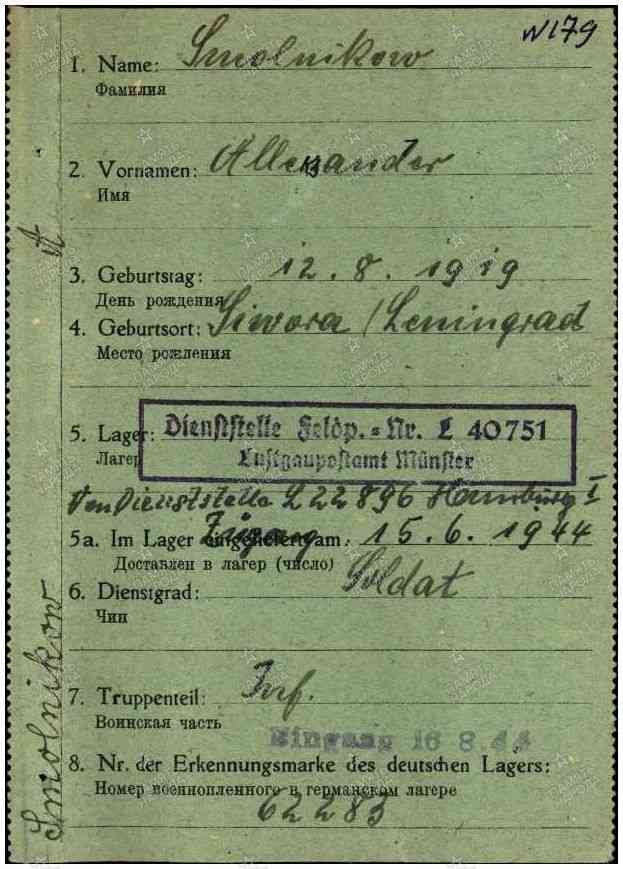 N179
1. Name: Smolnikow
Фамилия
2. Vornamen: Allexander
Имя
3. Geburtstag: 12. 8. 1919
День рождения
4. Geburtsort: Siwora / Leningrad
Место рождения
Dienststelle Feldp.=Nr. L 40751
5. Lager:
Лагер
Luftgaupostamt Münster
Von Dienststelle L 22896 Hamburg I
5a. Im Lager eingeliefert am: Zugang 15. 6. 1944
Доставлен в лагер (число)
6. Dienstgrad: Soldat
Чин
7. Truppenteil: Inf.
Воинская часть
Eingang 16 8. 44
8. Nr. der Erkennungsmarke des deutschen Lagers:
Номер военнопленного в германском лагере
62283
Smolnikow A